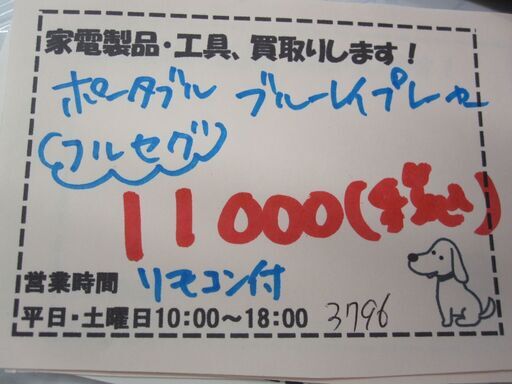 家電製品・工具、買取りします！
ポータブル ブルーレイプレーヤー
(フルセグ)
11000(税込)
営業時間 リモコン付
平日・土曜日10:00～18:00 3796